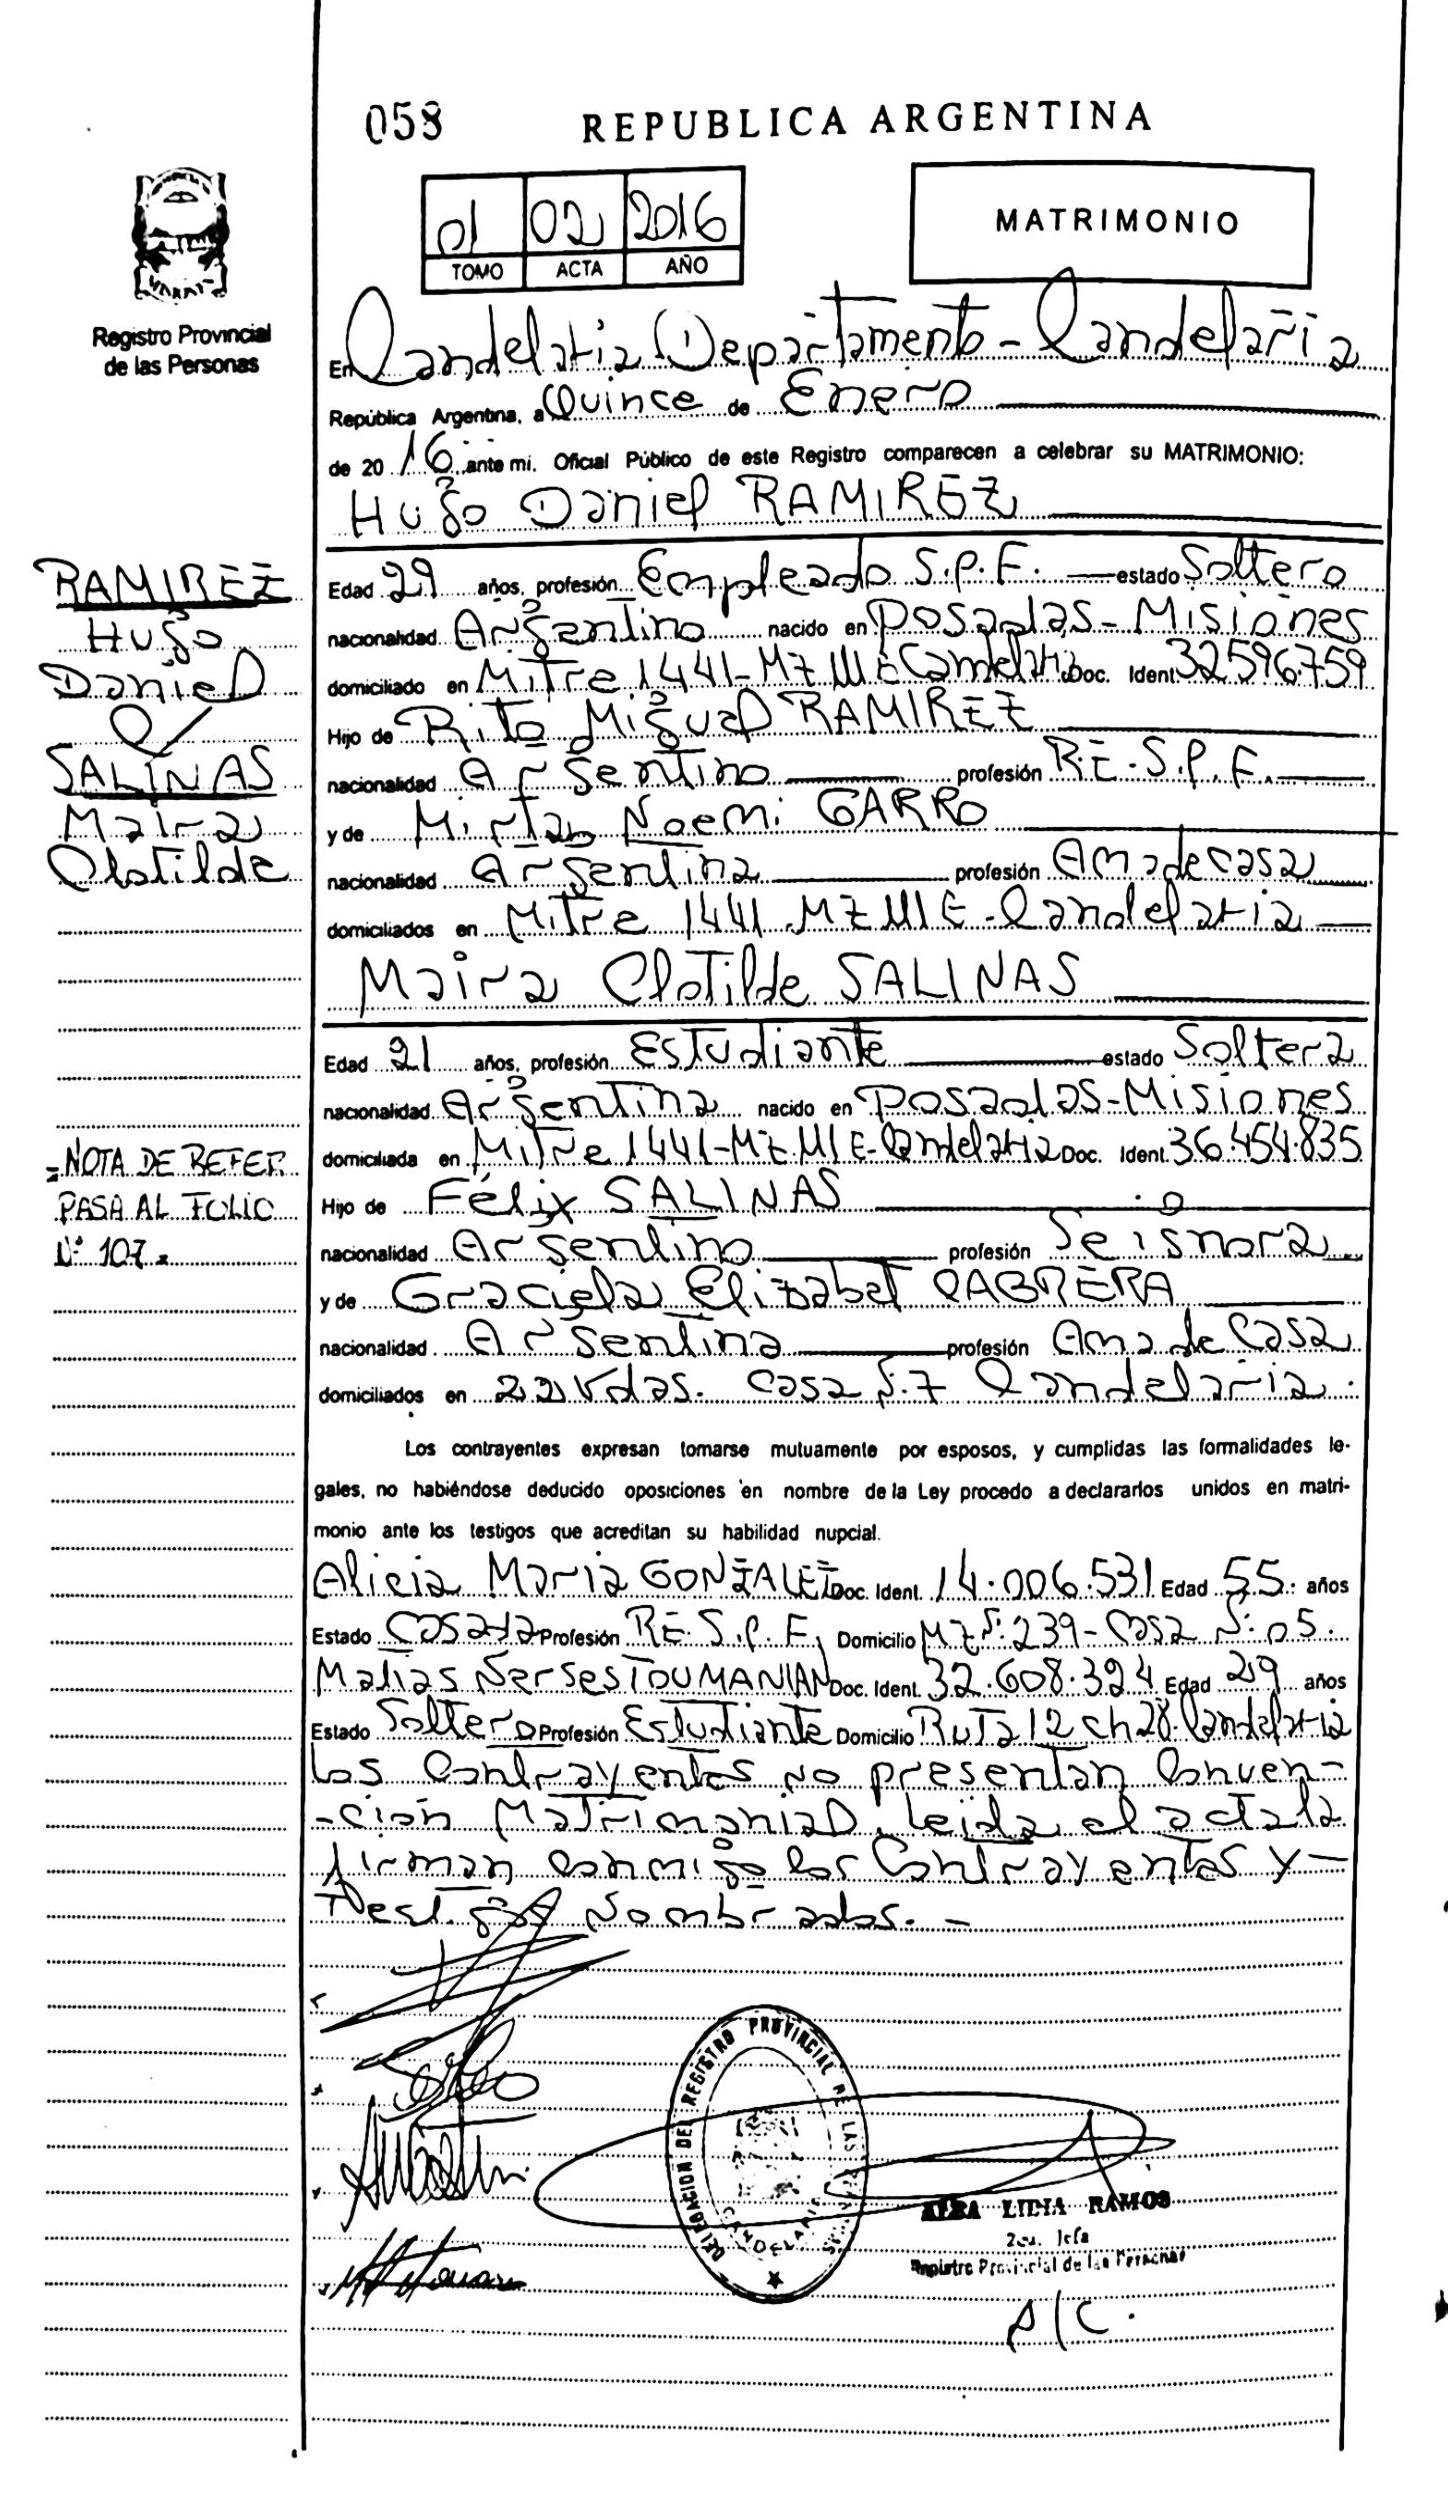 058 REPUBLICA ARGENTINA
01 02 2016
TOMO ACTA AÑO
MATRIMONIO
Registro Provincial
de las Personas
En Candelaria Departamento - Candelaria
República Argentina, a Quince de Enero
de 2016 ante mi. Oficial Público de este Registro comparecen a celebrar su MATRIMONIO:
Hugo Daniel RAMIREZ
RAMIREZ
Hugo
Daniel
SALINAS
Maira
Clotilde
Edad 29 años, profesión Empleado S.P.F. estado Soltero
nacionalidad Argentino nacido en Posadas - Misiones
domiciliado en Mitre 1441 - Mz Candelaria Doc. Ident. 32596759
Hijo de Rito Miguel RAMIREZ
nacionalidad Argentino profesión RE. S.P.F.
y de Mirta Noemi GARRO
nacionalidad Argentina profesión Ama de casa
domiciliados en Mitre 1441 Mz - Candelaria
Maira Clotilde SALINAS
Edad 21 años, profesión Estudiante estado Soltera
nacionalidad Argentina nacido en Posadas - Misiones
domiciliada en Mitre 1441 - Mz - Candelaria Doc. Ident. 36.454.835
Hijo de Félix SALINAS
nacionalidad Argentino profesión Se ignora
y de Graciela Elizabet CABRERA
nacionalidad Argentina profesión Ama de Casa
domiciliados en 22 Vdas. Casa N:7 Candelaria.
= NOTA DE REFER.
PASA AL FOLIO
Nº 107 =
Los contrayentes expresan tomarse mutuamente por esposos, y cumplidas las formalidades le-
gales, no habiéndose deducido oposiciones en nombre de la Ley procedo a declararlos unidos en matri-
monio ante los testigos que acreditan su habilidad nupcial.
Alicia Maria GONZALEZ Doc. Ident. 14.006.531 Edad 55 años
Estado Casada Profesión RE. S.P.F. Domicilio Mz N: 239 - Casa N: 05.
Matias Nerses TOUMANIAN Doc. Ident. 32.608.324 Edad 29 años
Estado Soltero Profesión Estudiante Domicilio Ruta 12 ch 28. Candelaria
Los Contrayentes no presentan Conven-
-cion Matrimonial. Leida el acta la
firman conmigo los Contrayentes y -
Testigos Nombrados. -
DELEGACION DEL REGISTRO PROVINCIAL DE LAS
CANDELARIA
ALBA LIDIA RAMOS
2da. Jefa
Registro Provincial de las Personas
A/C.